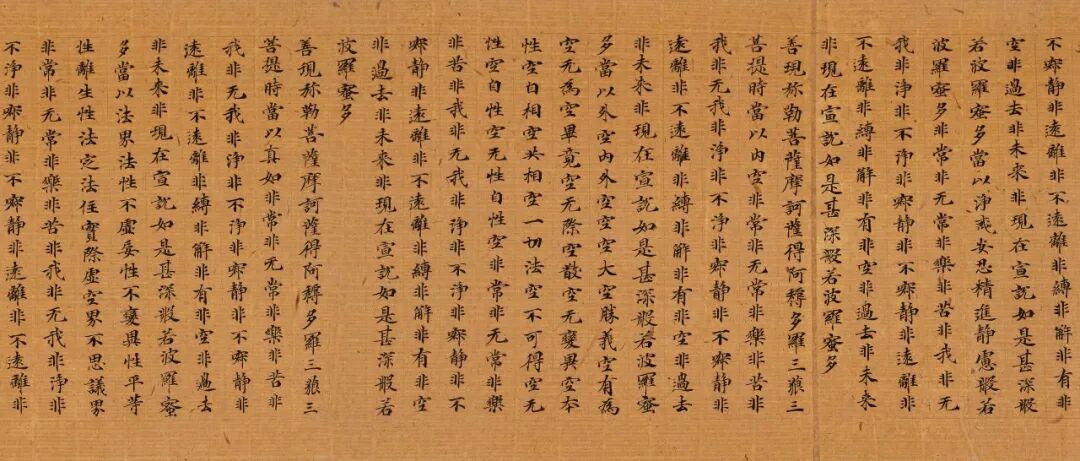 不寂靜非遠離非不遠離非縛非解非有非
空非過去非未來非現在宣說如是甚深般
若波羅蜜多當以淨戒安忍精進靜慮般若
波羅蜜多非常非无常非樂非苦非我非无
我非淨非不淨非寂靜非不寂靜非遠離非
不遠離非縛非解非有非空非過去非未來
非現在宣說如是甚深般若波羅蜜多
善現弥勒菩薩摩訶薩得阿耨多羅三藐三
菩提時當以內空非常非无常非樂非苦非
我非无我非淨非不淨非寂靜非不寂靜非
遠離非不遠離非縛非解非有非空非過去
非未來非現在宣說如是甚深般若波羅蜜
多當以外空內外空空空大空勝義空有為
空无為空畢竟空无際空散空无變異空本
性空自相空共相空一切法空不可得空无
性空自性空无性自性空非常非无常非樂
非苦非我非无我非淨非不淨非寂靜非不
寂靜非遠離非不遠離非縛非解非有非空
非過去非未來非現在宣說如是甚深般若
波羅蜜多
善現弥勒菩薩摩訶薩得阿耨多羅三藐三
菩提時當以真如非常非无常非樂非苦非
我非无我非淨非不淨非寂靜非不寂靜非
遠離非不遠離非縛非解非有非空非過去
非未來非現在宣說如是甚深般若波羅蜜
多當以法界法性不虛妄性不變異性平等
性離生性法定法住實際虛空界不思議界
非常非无常非樂非苦非我非无我非淨非
不淨非寂靜非不寂靜非遠離非不遠離非